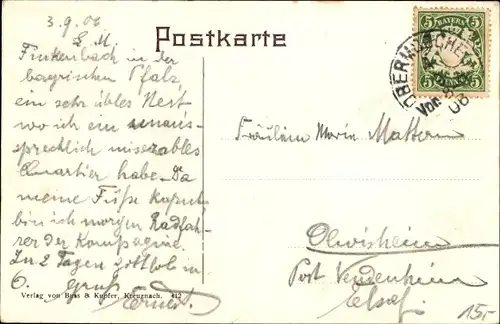 3.9.06
L. M.
Postkarte
Finkenbach in der
bayrischen Pfalz,
ein sehr übles Nest
wo ich ein unaus-
sprechlich miserables
Quartier habe. Da
meine Füße kaput
bin ich morgen Radfah-
rer der Kompagnie.
In 2 Tagen gottlob in
6. Gruß
Ernst
Verlag von Buss & Kupfer, Kreuznach. 412
5 BAYERN 5
5 5
OBERMOSCHEL
Vor.
06
Fräulein Marie Mattern
Olwisheim
Post Vendenheim
Elsaß
15,-